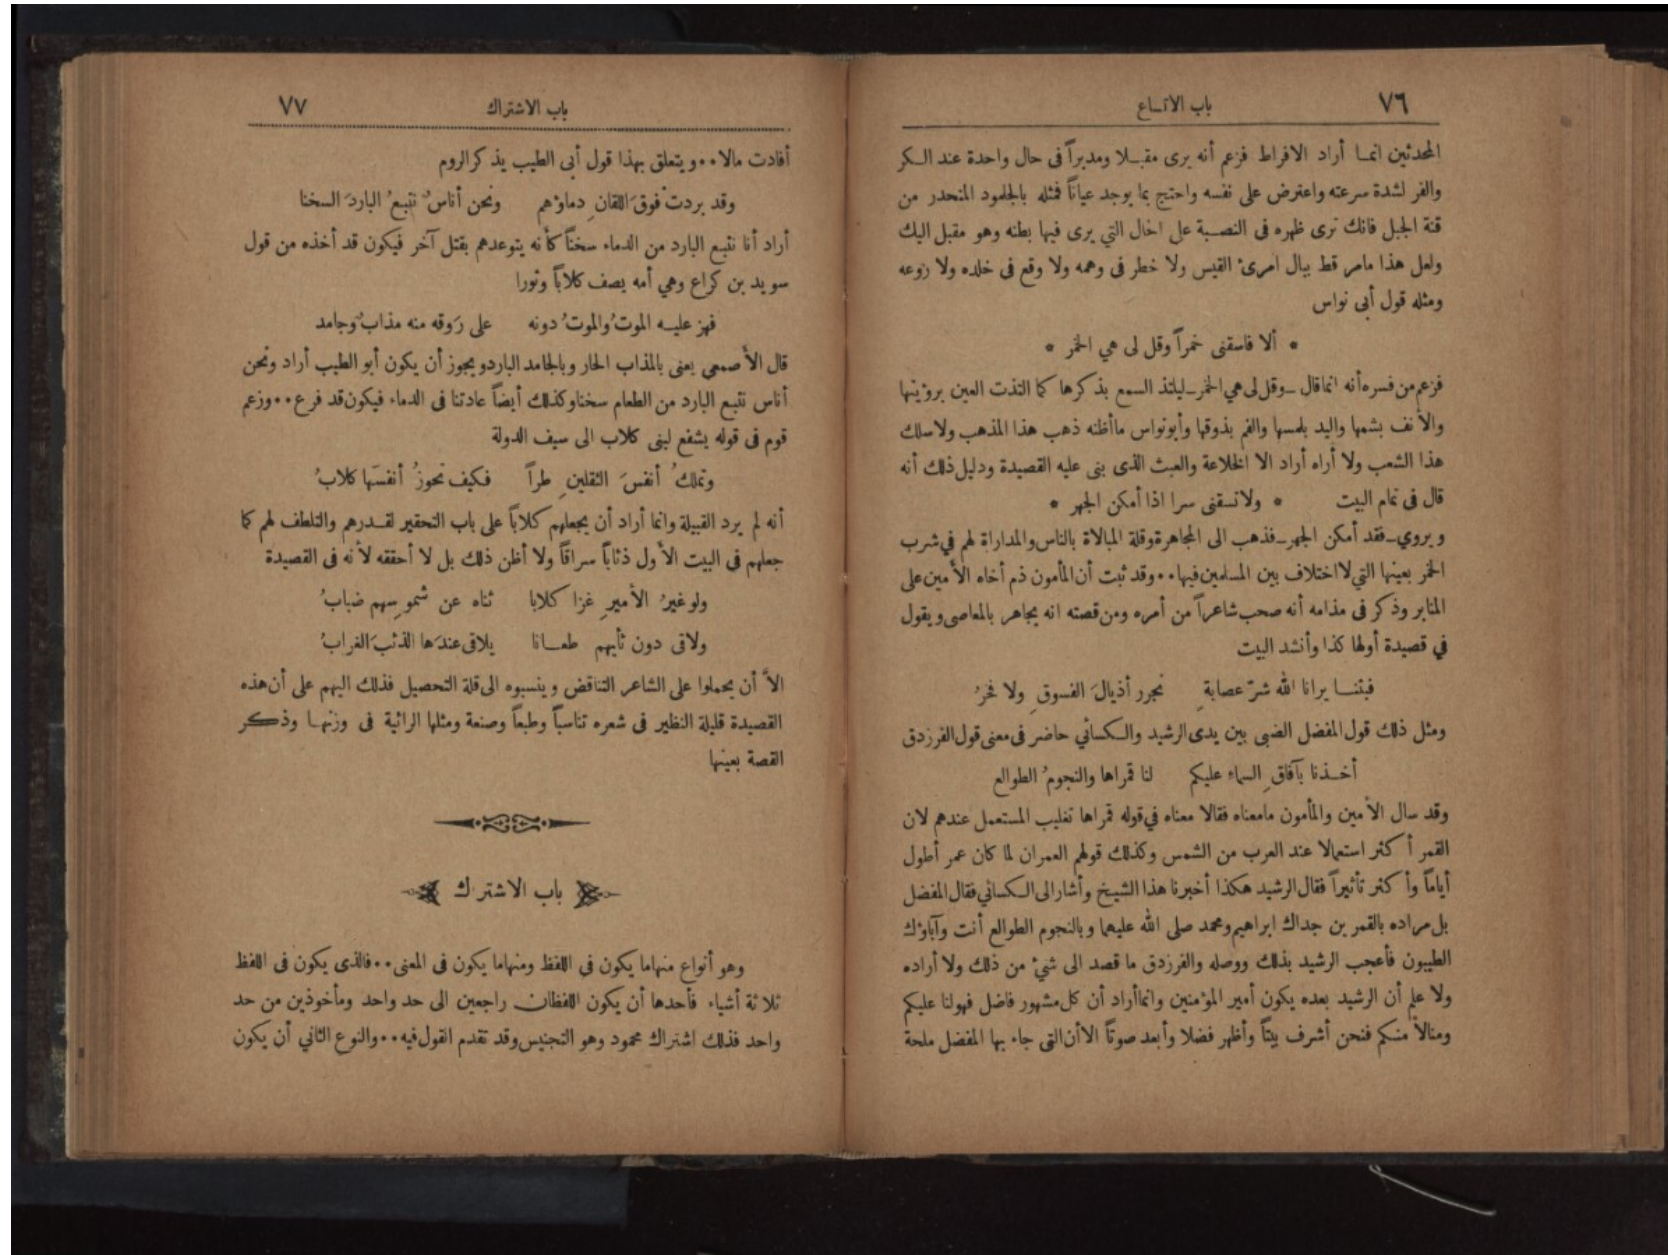 ٧٦
باب الاتساع
المحدثين انما أراد الافراط فزعم أنه يرى مقبلا ومدبراً فى حال واحدة عند الكر
والفر لشدة سرعته واعترض على نفسه واحتج بما يوجد عياناً فمثله بالجلمود المنحدر من
قنة الجبل فانك ترى ظهره فى النصبة على الحال التي يرى فيها بطنه وهو مقبل اليك
ولعل هذا مامر قط ببال امرئ القيس ولا خطر فى وهمه ولا وقع فى خلده ولا روعه
ومثله قول أبى نواس
* ألا فاسقنى خمراً وقل لى هي الخمر *
فزعم من فسره أنه انما قال ـ وقل لى هي الخمر ـ ليلتذ السمع بذكرها كما التذت العين برؤيتها
والأنف بشمها واليد بلمسها والفم بذوقها وأبونواس ماأظنه ذهب هذا المذهب ولا سلك
هذا الشعب ولا أراه أراد الا الخلاعة والعبث الذى بنى عليه القصيدة ودليل ذلك أنه
قال فى تمام البيت * ولا تسقنى سرا اذا أمكن الجهر *
ويروي ـ فقد أمكن الجهر ـ فذهب الى المجاهرة وقلة المبالاة بالناس والمداراة لهم في شرب
الخمر بعينها التي لا اختلاف بين المسلمين فيها ٠٠ وقد ثبت أن المأمون ذم أخاه الأمين على
المنابر وذكر فى مذامه أنه صحب شاعراً من أمره ومن قصته انه يجاهر بالمعاصى ويقول
في قصيدة أولها كذا وأنشد البيت
فبتنا يرانا الله شرّ عصابةٍ نجرر أذيالَ الفسوقِ ولا فخرُ
ومثل ذلك قول المفضل الضبى بين يدى الرشيد والكسائي حاضر فى معنى قول الفرزدق
أخذنا بآفاقِ السماء عليكم لنا قمراها والنجومُ الطوالع
وقد سال الأمين والمأمون مامعناه فقالا معناه في قوله قمراها تغليب المستعمل عندهم لان
القمر أكثر استعمالا عند العرب من الشمس وكذلك قولهم العمران لما كان عمر أطول
أياماً وأكثر تأثيراً فقال الرشيد هكذا أخبرنا هذا الشيخ وأشار الى الكسائي فقال المفضل
بل مراده بالقمرين جداك ابراهيم ومحمد صلى الله عليهما وبالنجوم الطوالع أنت وآباؤك
الطيبون فأعجب الرشيد بذلك ووصله والفرزدق ما قصد الى شئ من ذلك ولا أراده
ولا علم أن الرشيد بعده يكون أمير المؤمنين وانما أراد أن كل مشهور فاضل فهولنا عليكم
ومنالا منكم فنحن أشرف بيتاً وأظهر فضلا وأبعد صوتاً الا أن التى جاء بها المفضل ملحة
باب الاشتراك
٧٧
أفادت مالا ٠٠ ويتعلق بهذا قول أبى الطيب يذكر الروم
وقد بردتْ فوقَ اللقانِ دماؤهم ونحن أناسٌ نتبعُ الباردَ السخنا
أراد أنا نتبع البارد من الدماء سخناً كأنه يتوعدهم بقتل آخر فيكون قد أخذه من قول
سويد بن كراع وهي أمه يصف كلاباً وثورا
فهز عليه الموتُ والموتُ دونه على رَوقه منه مذابٌ وجامد
قال الأصمعي يعنى بالمذاب الحار وبالجامد البارد ويجوز أن يكون أبو الطيب أراد ونحن
أناس نتبع البارد من الطعام سخنا وكذلك أيضاً عادتنا فى الدماء فيكون قد فرع ٠٠ وزعم
قوم فى قوله يشفع لبنى كلاب الى سيف الدولة
وتملكُ أنفسَ الثقلينِ طراً فكيف تحوزُ أنفسَها كلابُ
أنه لم يرد القبيلة وانما أراد أن يجعلهم كلاباً على باب التحقير لقدرهم والتلطف لهم كما
جعلهم فى البيت الأول ذئاباً سراقاً ولا أظن ذلك بل لا أحققه لأنه فى القصيدة
ولو غيرُ الأميرِ غزا كلابا ثناه عن شموسِهم ضبابُ
ولاقى دون ثأيهم طعانا يلاقى عندَها الذئبَ الغرابُ
الاَّ أن يحملوا على الشاعر التناقض وينسبوه الى قلة التحصيل فذلك اليهم على أن هذه
القصيدة قليلة النظير فى شعره تناسباً وطبعاً وصنعة ومثلها الرائية فى وزنها وذكر
القصة بعينها
باب الاشتراك
وهو أنواع منها ما يكون في اللفظ ومنها ما يكون فى المعنى ٠٠ فالذى يكون فى اللفظ
ثلاثة أشياء فأحدها أن يكون اللفظان راجعين الى حد واحد ومأخوذين من حد
واحد فذلك اشتراك محمود وهو التجنيس وقد تقدم القول فيه ٠٠ والنوع الثاني أن يكون